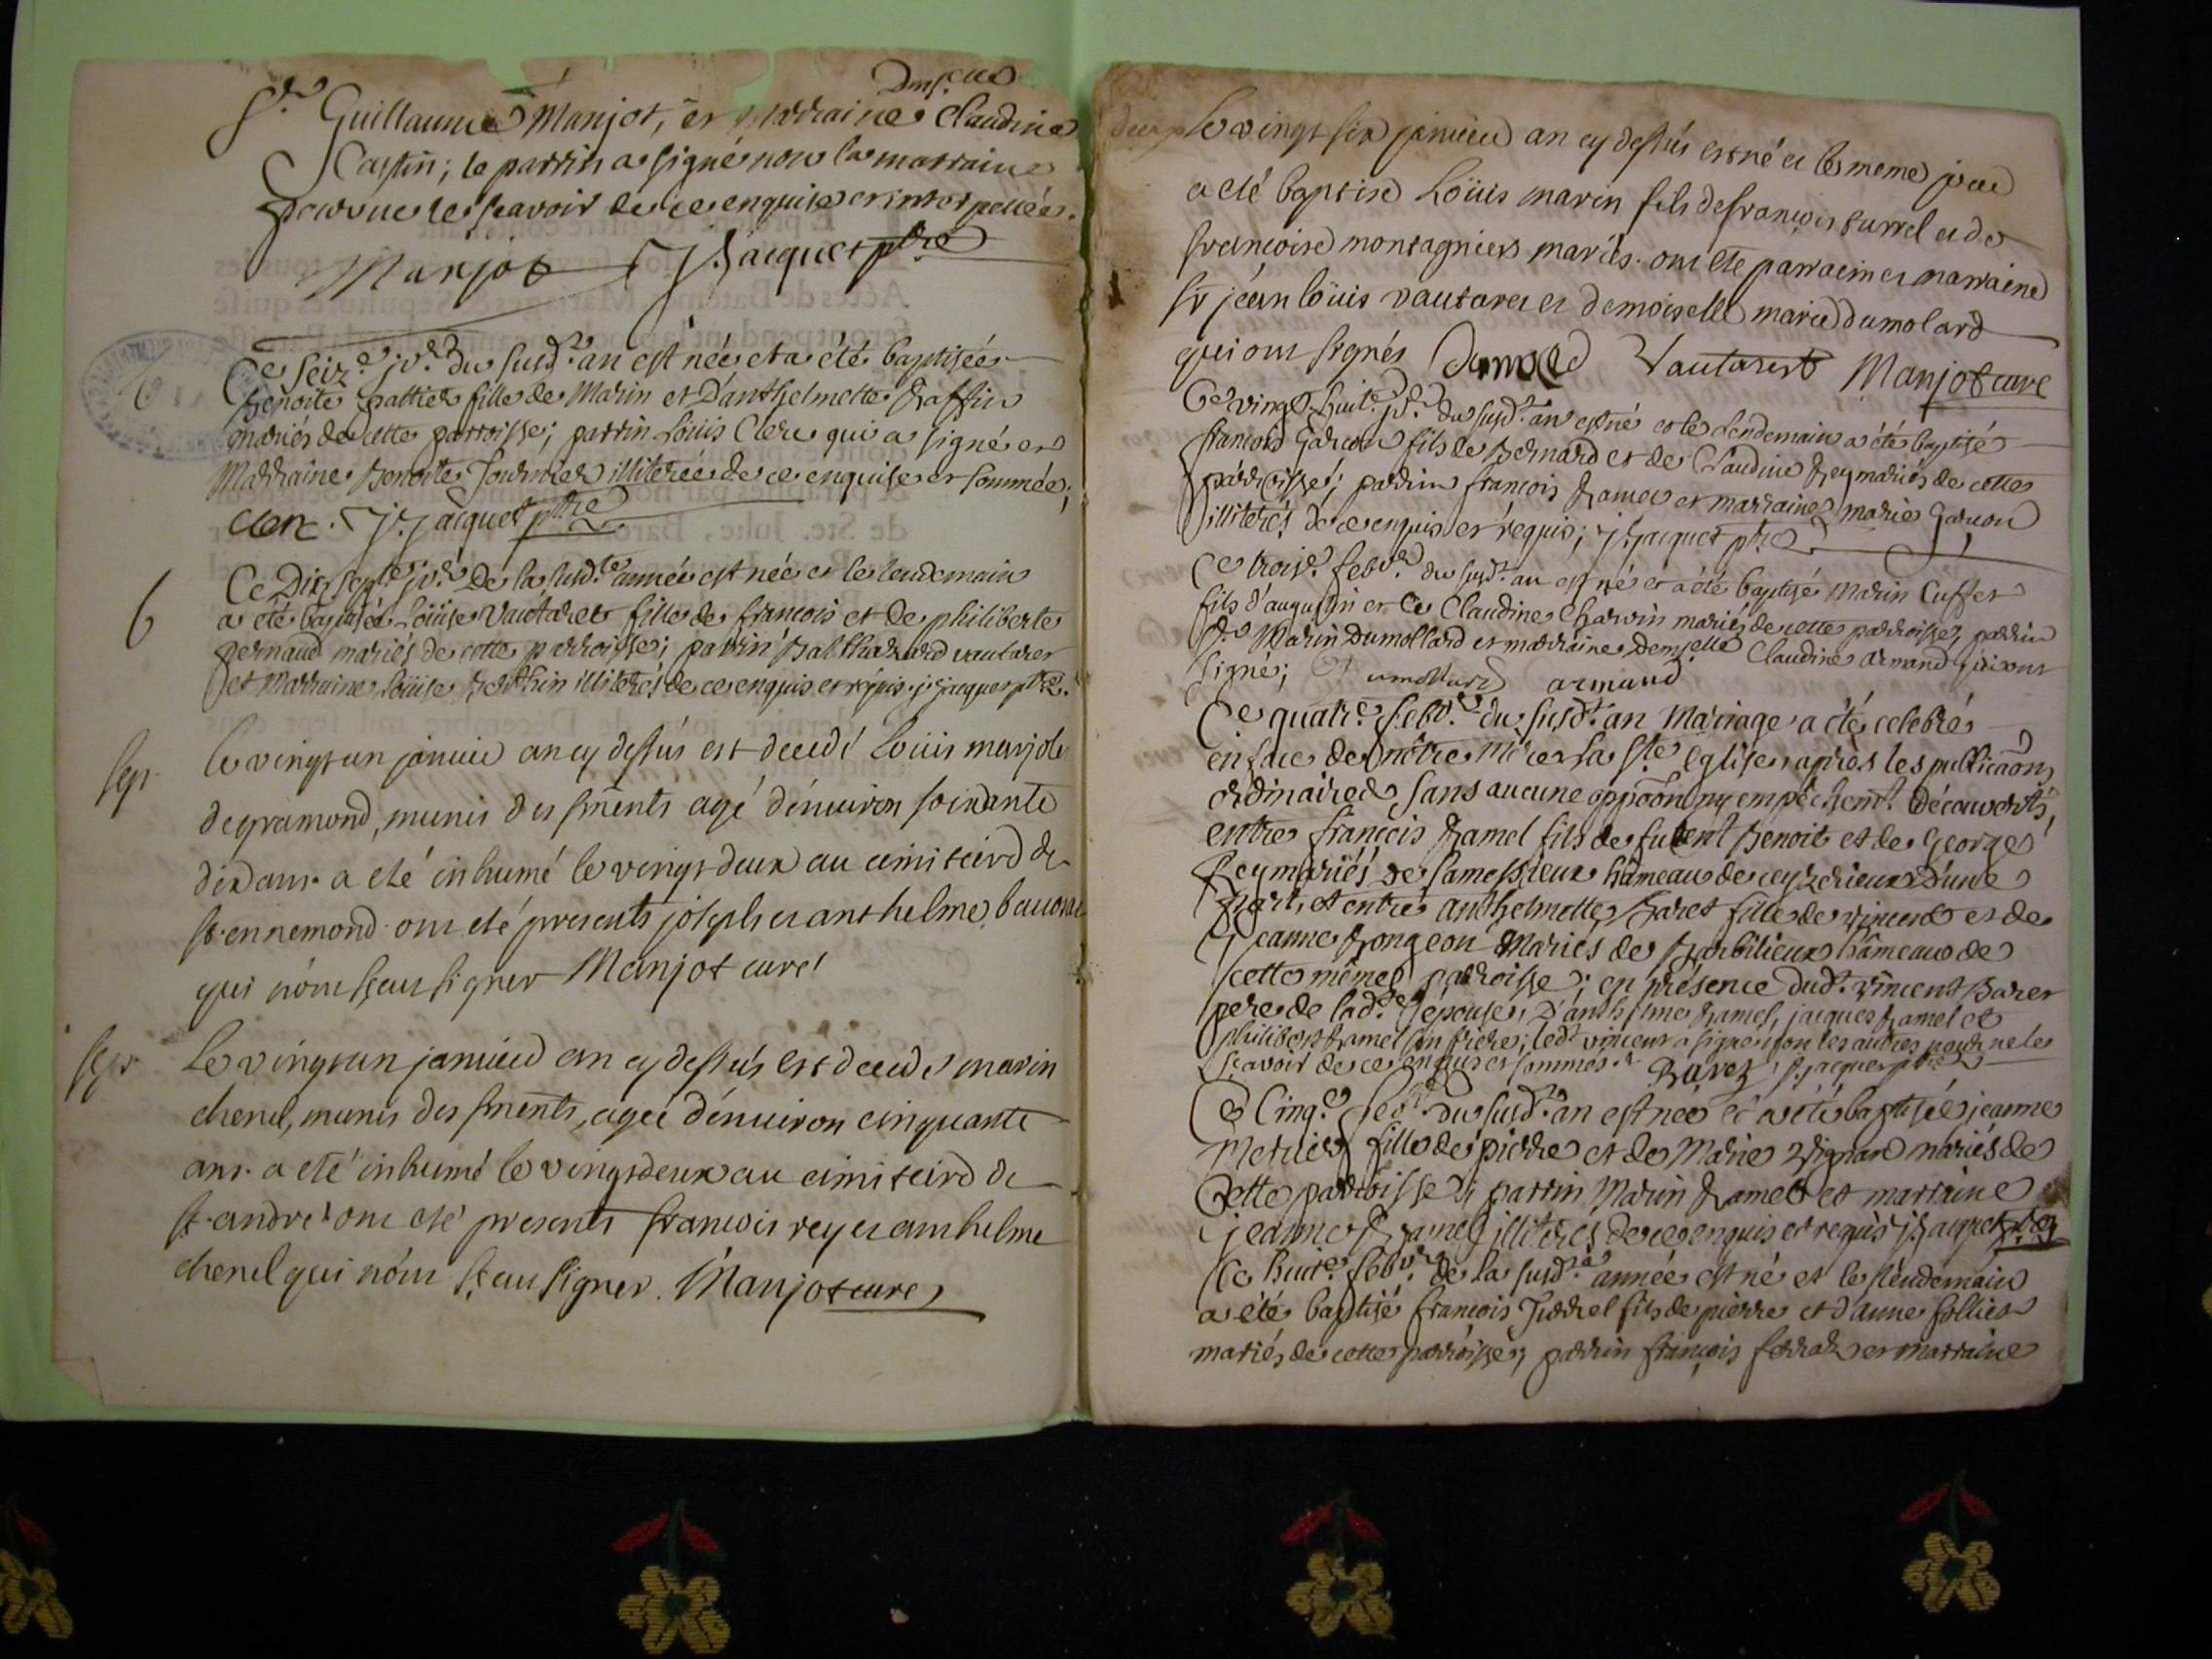 Sr. Guillaume Manjot, et marraine Claudine
Castin; le parrin a signé non la marraine
pour ne le scavoir de ce enquise et interpellée.
Manjot J. Jacquet ptre
Ce seize. jv.er du susd.t an est née et a été baptisée
Benoite pattier fille de Marin et D'anthelmette Raffin
mariés de cette parroisse; parrin Loüis Clerc qui a signé et
Marraine Benoite Fournier illiterée de ce enquise et sommée;
Clerc. J. Jacquet ptre
6
Ce Dix sept.e jv.er De la susd.te année est née et le lendemain
a été baptisée Loüise Vautaret fille de francois et de philiberte
pernaud mariés de cette parroisse; parrin Balthazard vautaret
et Marraine Loüise Berthin illiterés de ce enquis et requis. j. jacquet ptre.
sep.
le vingt un janvier an cy dessus est decedé Loüis manjot
degramond, munis des sments agé d'environ soixante
dix ans. a eté inhumé le vingt deux au cimiteire de
st. ennemond. ont eté presents joseph et anthelme
qui n'ont sceu signer Manjot curé
sep.
Le vingt un janvier an cy dessus est decedé marin
chenel, munis des sments, agé d'environ cinquante
ans. a eté inhumé le vingt deux au cimiteire de
st. andré. ont eté presents francois rey et anthelme
chenel qui n'ont sceu signer. Manjot curé
Le vingt six janvier an cy dessus est né et le meme jour
a eté baptisé Loüis marin fils de françois turrel et de
françoise montagnier mariés. ont eté parrain et marraine
sr jean loüis vautaret et demoiselle marie dumolard
qui ont signés Vautaret Manjot curé
Ce vingt huit.e jv.er du susd.t an est né et le lendemain a été baptisé
francois Garçon fils de Bernard et de Claudine Rey mariés de cette
parroisse; parrin francois Ramel et marraine marie Garçon
illiterés de ce enquis et requis; j. jacquet ptre
Ce trois.e febv.er du susd.t an est né et a été baptisé Marin Cuffet
fils d'augustin et de Claudine Charvin mariés de cette parroisse, parrin
Sr. Marin Dumollard et marraine demselle Claudine Armand qui ont
signé; Dumollard armand
Ce quatr.e febv.er du susd.t an Mariage a été celebré
en face de nôtre Mère la Ste Eglise après les publicaons
ordinaires sans aucune oppoôn ny empéchemt. découverts,
entre françois Ramel fils de Benoit et de George
Rey mariés de hâmeau de ceyzerieux D'une
part, et entre anthelmette Baret fille de vincent et de
Jeanne Rongeon Mariés de hâmeau de
cette même parroisse; en présence dud.t vincent Baret
pere de lad.te épouse, D'anthelme Ramel, jacques Ramel et
philibert Ramel son frere; led.t vincent a signé non les autres pour ne le
scavoir de ce enquis et sommés. Baret J. jacquet ptre
Ce Cinq.e feb.er du susd.t an est née et a été baptisée jeanne
Metrier fille de pierre et de Marie mariés de
Cette parroisse; parrin Marin Ramel et marraine
jeanne Ramel illiterés de ce enquis et requis j. jacquet ptre
Ce huit.e febv.er de la susd.te année est né et le lendemain
a été baptisé francois Turrel fils de pierre et d'anne follier
mariés de cette parroisse; parrin françois ferraz et marraine